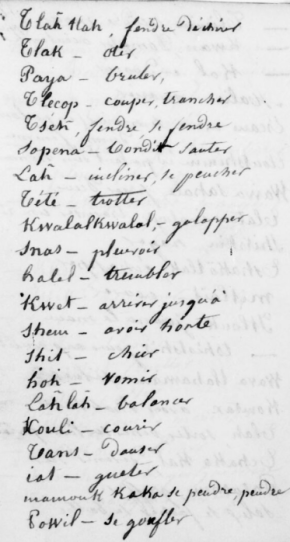 Tlah tlah, fendre déchirer
Tlak — oter
Paya — bruler,
Tlecop — couper, trancher
Tseh, fendre se fendre
Sopena — bondir sauter
Lah — incliner, se pencher
Tété — trotter
Kwalalkwalal — galopper
Snas — pleuvoir
halel — trembler
Kwet — arriver jusqu'à
Shem — avoir honte
Shit — chier
hoh — vomir
Lahlah — balancer
Kouli — courir
Tans — danser
iat — gueter
mamouk Kaka se pendre pendre
Powil — se gonfler